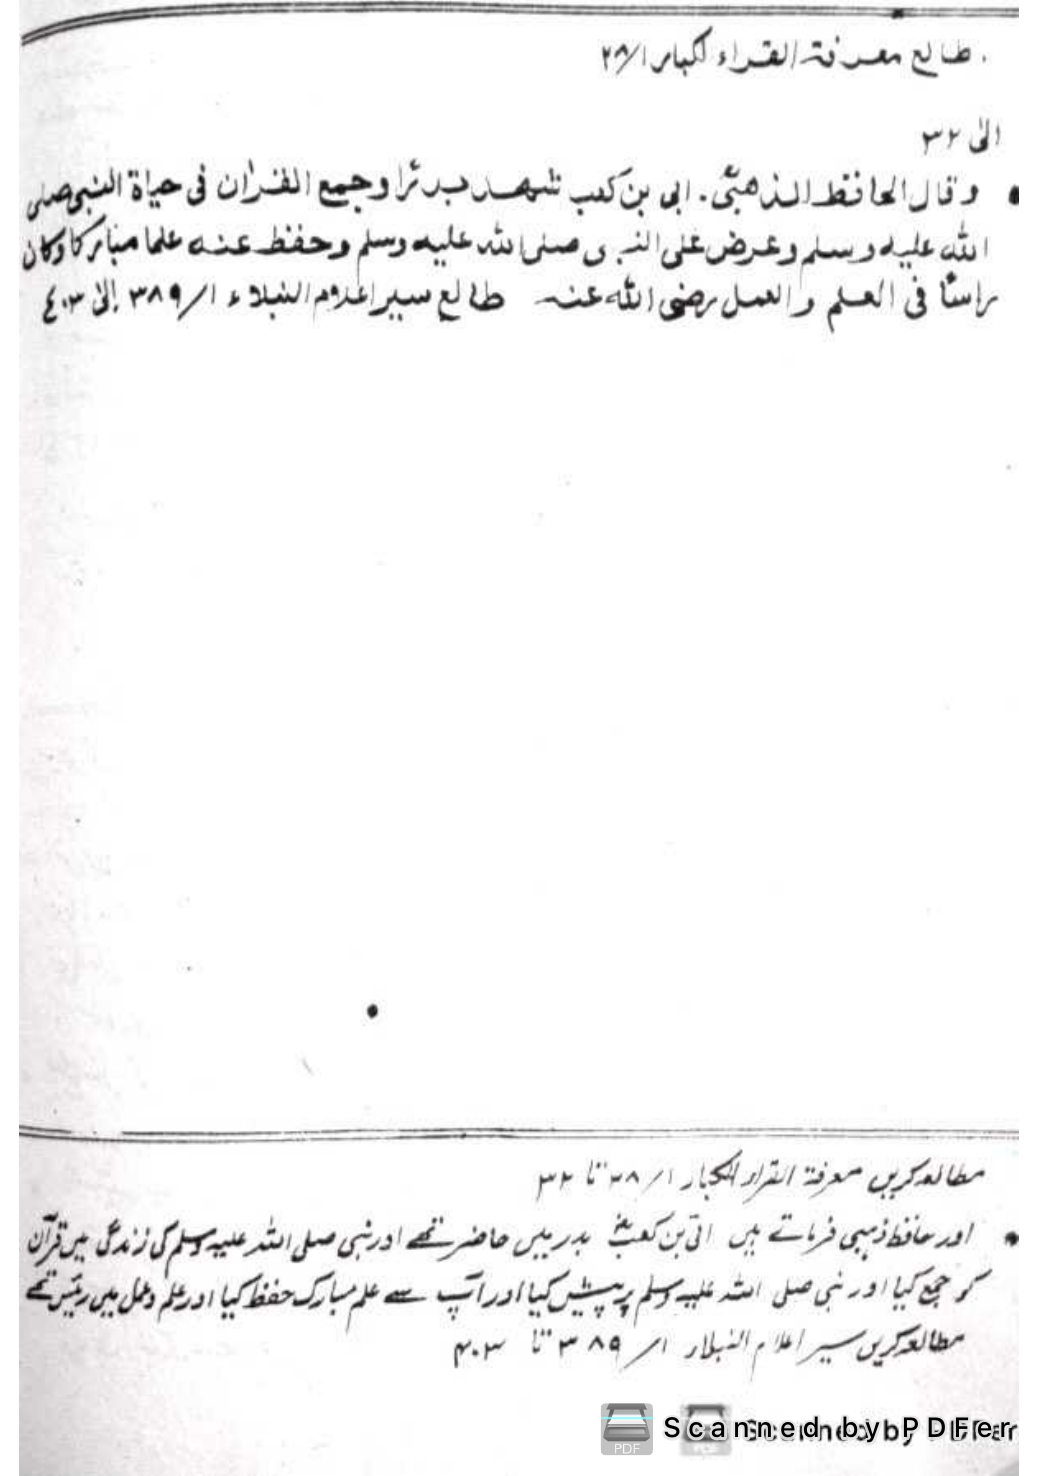 طالع معرفة القراء لكبار ۱/۲۸
الیٰ ۳۲
• وقال الحافظ الذهبیؒ. ابی بن کعب شهد بدرًا وجمع القرٰان فی حیاة النبی صلی
اللّٰه علیه وسلم وعرض علی النبی صلی اللّٰه علیه وسلم وحفظ عنه علما مبارکا وکان
راسًا فی العلم والعمل رضی اللّٰه عنه طالع سیر اعلام النبلاء ۱/۳۸۹ إلیٰ ۴۰۳
مطالعہ کریں معرفۃ القراء الکبار ۱/۲۸ تا ۳۲
• اور حافظ ذہبی فرماتے ہیں ابی بن کعبؓ بدر میں حاضر تھے اور نبی صلی اللہ علیہ وسلم کی زندگی میں قرآن
کو جمع کیا اور نبی صلی اللہ علیہ وسلم پر پیش کیا اور آپ سے علم مبارک حفظ کیا اور علم وعمل میں رئیس تھے
مطالعہ کریں سیر اعلام النبلاء ۱/۳۸۹ تا ۴۰۳
Scanned by PDFer
Scanned by PDFer